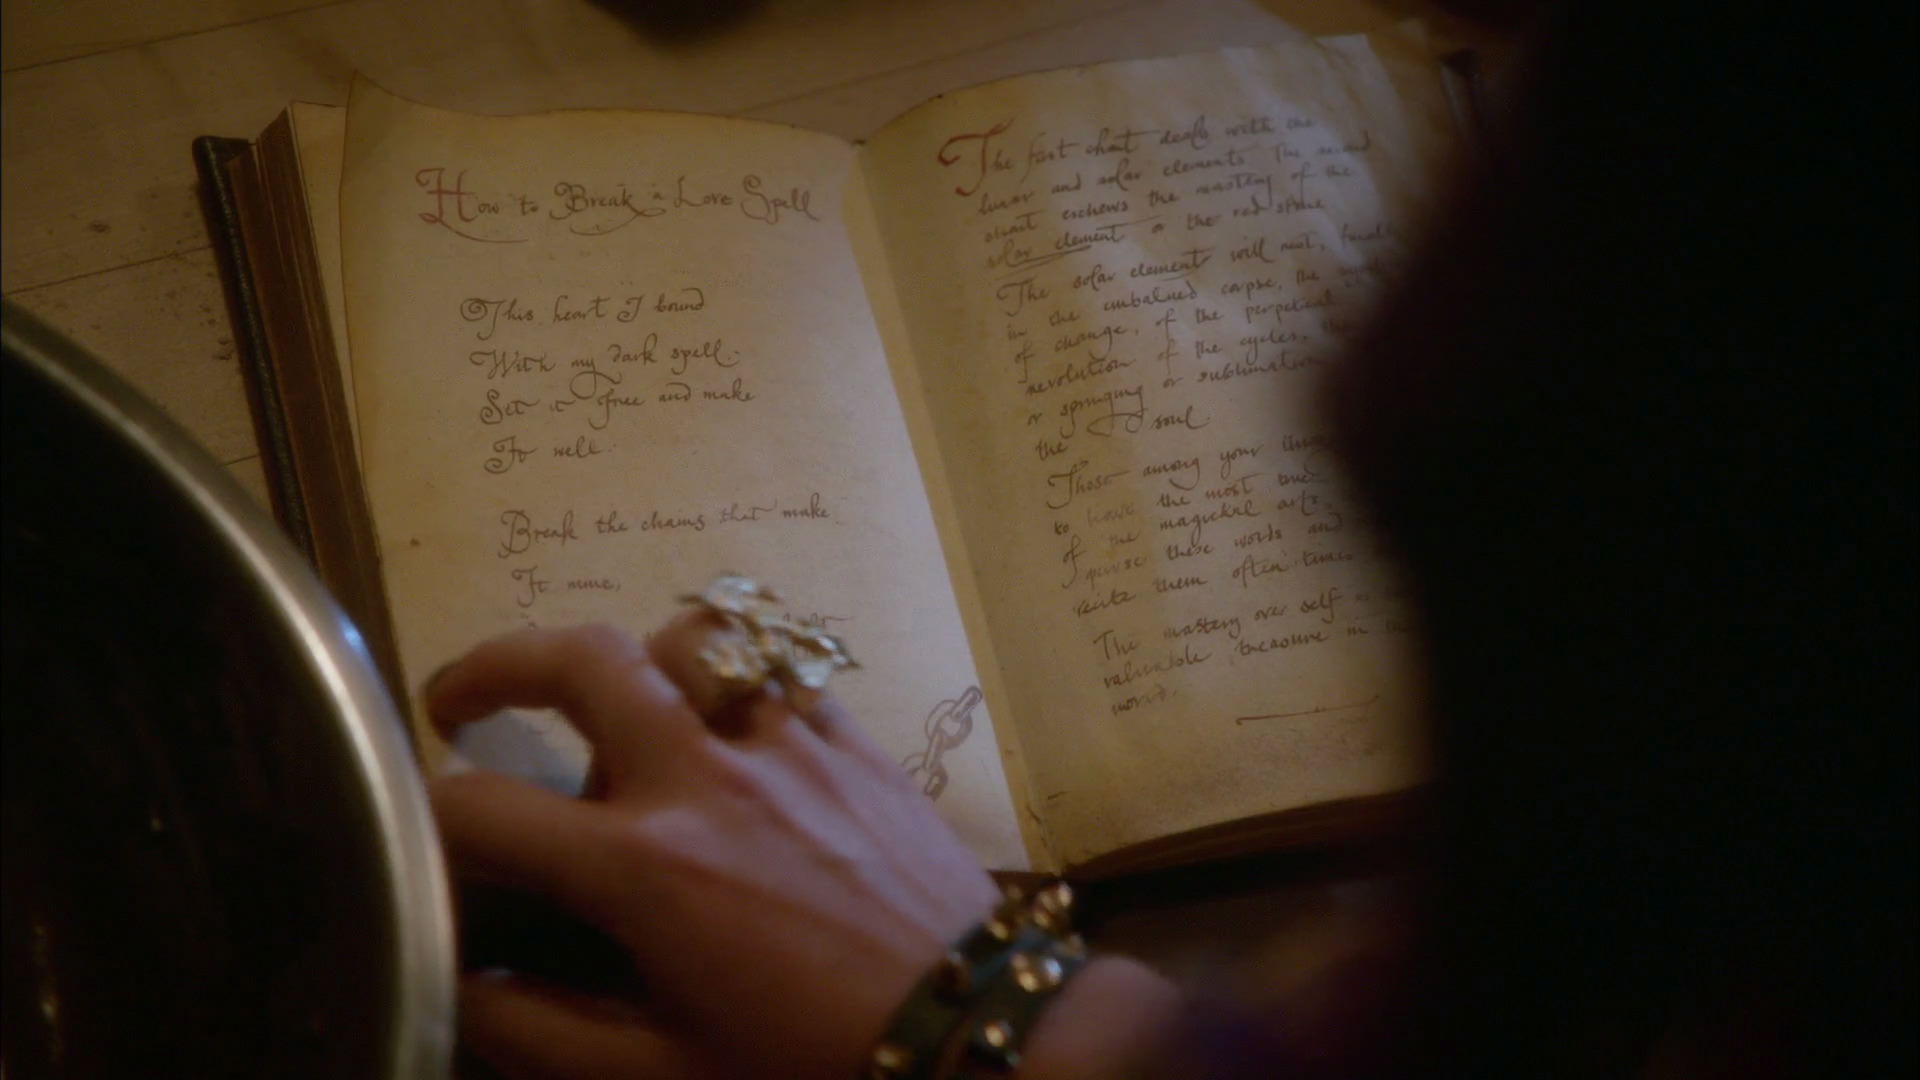 How to Break a Love Spell
This heart I bound
With my dark spell.
Set it free and make
It well.
Break the chains that make
It mine,
The first chant deals with the
lunar and solar elements. The second
chant eschews the mastery of the
solar element or the red stone
The solar element will next,
in the embalmed corpse, the
of change, of the perpetual
revolution of the cycles,
or springing or sublimation
the soul.
Those among your
to have the most
of the magickal arts,
peruse these words and
recite them often times
The mastery over self
valuable treasure in
world.